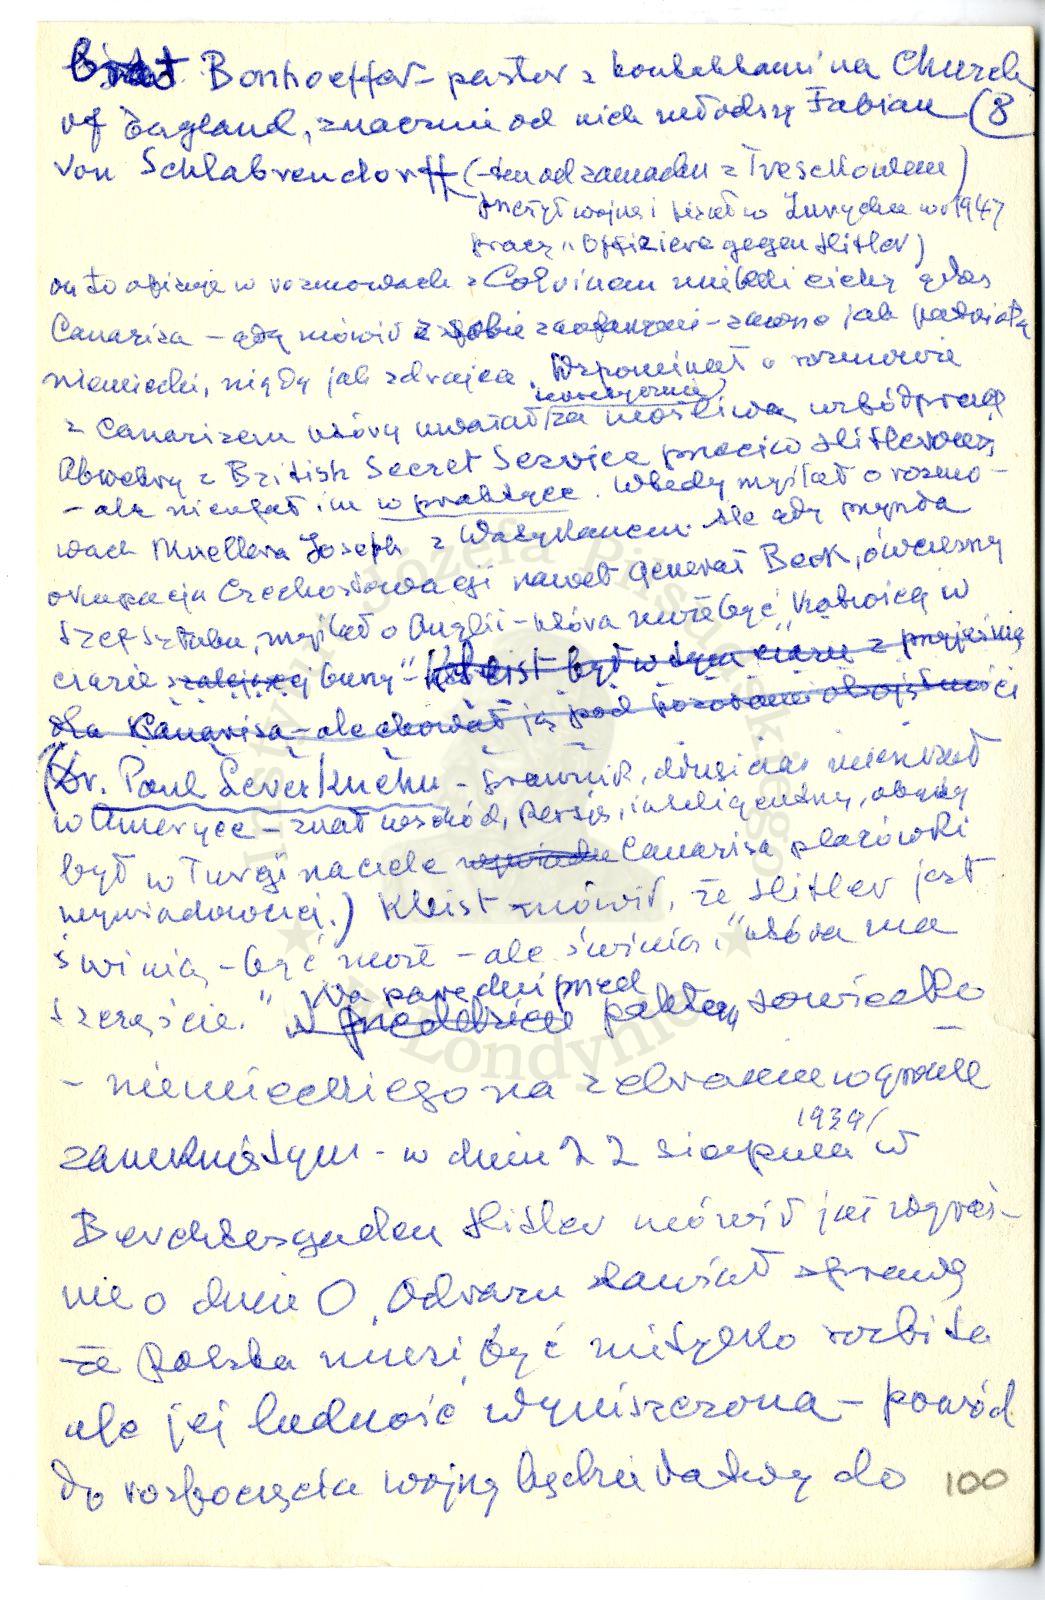 Bonhoeffer - pastor z kontaktami na Church
of England, znacznie od nich młodszy Fabian (8
von Schlabrendorff (-ten od zamachu z Treschkowem)
przeżył wojnę i pisał w Zurychu w 1947
pracę "Offiziere gegen Hitler)
on to opisuje w rozmowach z Colvinem cichy głos
Canarisa - gdy mówił z zaufanymi - zawsze jak patriota
niemiecki, nigdy jak zdrajca. Wspominał o rozmowie
teoretycznie
z Canarisem który uważał za możliwą współpracę
Abwehry z British Secret Service przeciw Hitlerowi,
- ale nie ufał im w praktyce. Wtedy myślał o rozmo-
wach Muellera Joseph z Watykanem. Ale gdy przyszła
okupacja Czechosłowacji nawet generał Beck, ówczesny
szef sztabu, myślał o Anglii - która może być "kotwicą w
czasie szalejącej burzy" - Kleist był w tym czasie z przyjaźnią
dla Canarisa - ale chował ją pod pozorami obojętności
(Dr. Paul Leverkuehn - prawnik, długi czas mieszkał
w Ameryce - znał wschód, Persję, inteligentny, obyty
był w Turcji na czele Canarisa placówki
wywiadowczej.) Kleist mówił, że Hitler jest
świnią - być może - ale świnią, "która ma
szczęście."
Na parę dni przed
paktem sowiecko
- niemieckiego na zebraniu w gronie
1939/
zamkniętym - w dniu 22 sierpnia w
Berchtesgaden Hitler mówił już wyraź-
nie o dniu O. Odrazu stawiał sprawę
że Polska musi być nietylko rozbita
ale jej ludność wyniszczona - powód
do rozpoczęcia wojny będzie łatwy do 100
Instytut Józefa Piłsudskiego
w Londynie